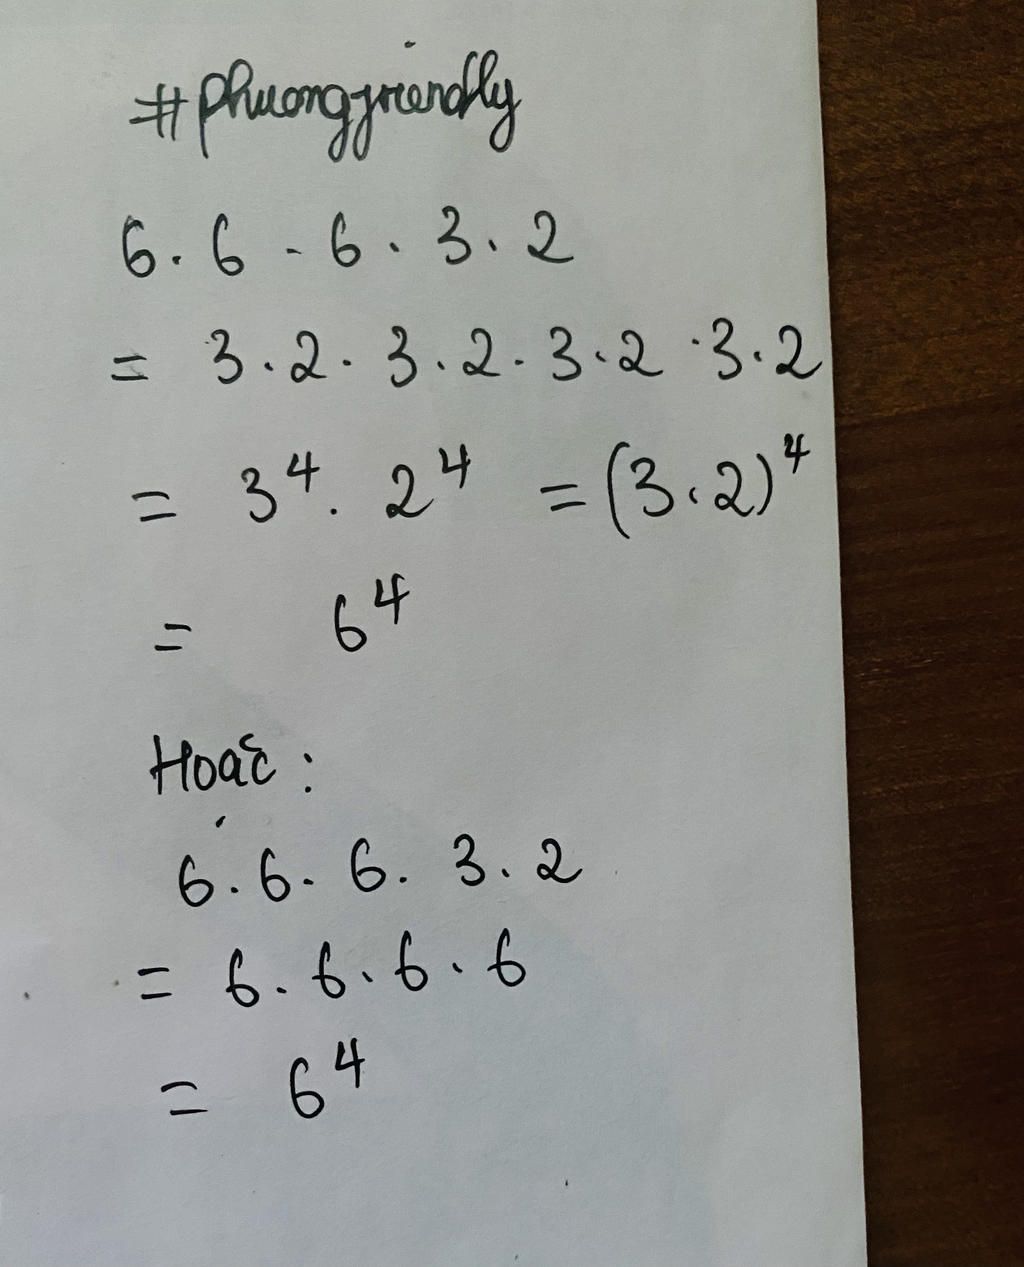 #phuongfriendly
6 . 6 . 6 . 3 . 2
= 3 . 2 . 3 . 2 . 3 . 2 . 3 . 2
= 3⁴ . 2⁴ = (3 . 2)⁴
= 6⁴
Hoặc :
6 . 6 . 6 . 3 . 2
= 6 . 6 . 6 . 6
= 6⁴